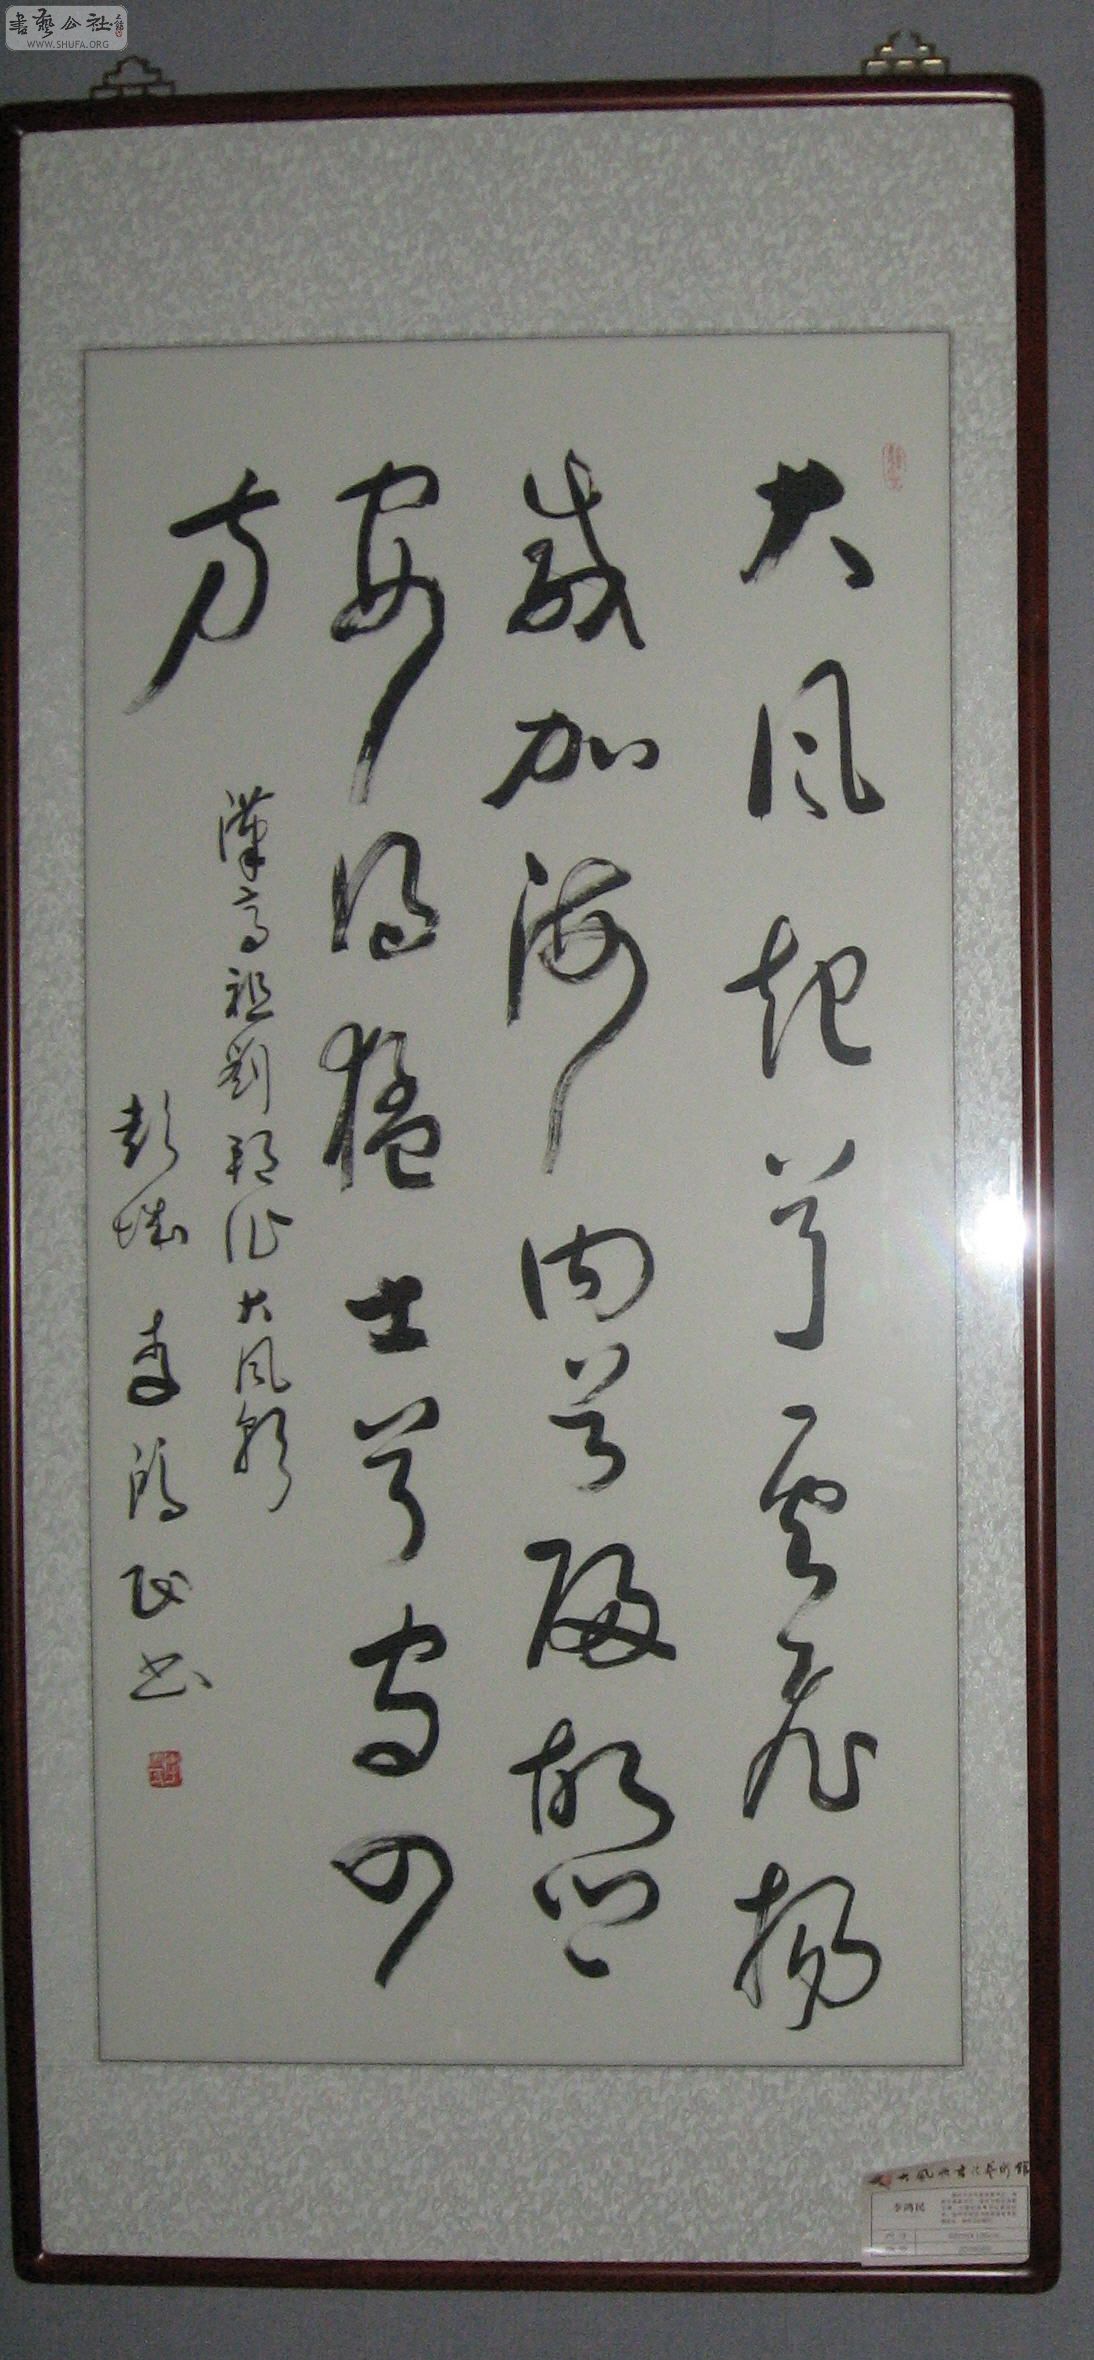 書藝公社
WWW.SHUFA.ORG
大風起兮雲飛揚
威加海內兮歸故鄉
安得猛士兮守四
方
漢高祖劉邦作大風歌
彭城李鴻民書
李鴻民